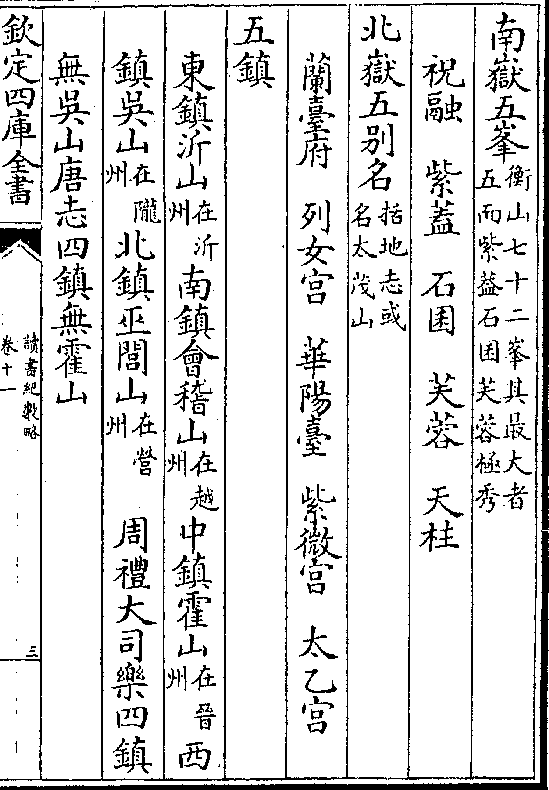 南嶽五峯衡山七十二峯其最大者五而紫蓋石囷芙蓉極秀
祝融　紫蓋　石囷　芙蓉　天柱
北嶽五别名括地志或名太茂山
蘭臺府　列女宫　華陽臺　紫微宫　太乙宫
五鎮
東鎮沂山在沂州南鎮會稽山在越州中鎮霍山在晉州西
鎮吳山在隴州北鎮巫閭山在營州　周禮大司樂四鎮
無吳山唐志四鎮無霍山
欽定四庫全書
讀書紀數略
卷十一
三